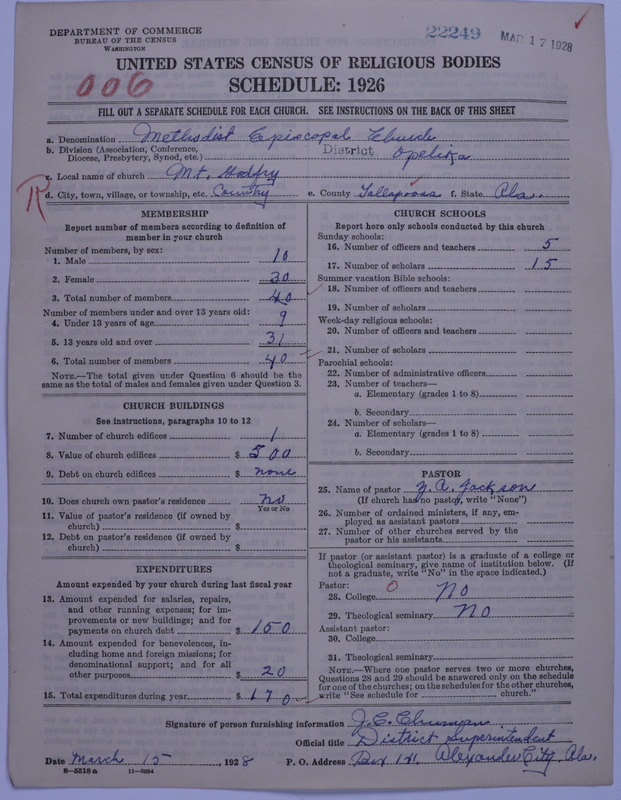 DEPARTMENT OF COMMERCE
BUREAU OF THE CENSUS
WASHINGTON
22249
MAR 17 1928
006
UNITED STATES CENSUS OF RELIGIOUS BODIES
SCHEDULE: 1926
FILL OUT A SEPARATE SCHEDULE FOR EACH CHURCH. SEE INSTRUCTIONS ON THE BACK OF THIS SHEET
a. Denomination Methodist Episcopal Church
b. Division (Association, Conference, Diocese, Presbytery, Synod, etc.) District Opelika
c. Local name of church Mt. Godfry
R
d. City, town, village, or township, etc. Country e. County Tallapoosa f. State Ala.
MEMBERSHIP
Report number of members according to definition of
member in your church
Number of members, by sex:
1. Male 10
2. Female 30
3. Total number of members 40
Number of members under and over 13 years old:
4. Under 13 years of age 9
5. 13 years old and over 31
6. Total number of members 40
NOTE.—The total given under Question 6 should be the
same as the total of males and females given under Question 3.
CHURCH BUILDINGS
See instructions, paragraphs 10 to 12
7. Number of church edifices 1
8. Value of church edifices $ 500
9. Debt on church edifices $ none
10. Does church own pastor's residence no
Yes or No
11. Value of pastor's residence (if owned by
church) $
12. Debt on pastor's residence (if owned by
church) $
EXPENDITURES
Amount expended by your church during last fiscal year
13. Amount expended for salaries, repairs,
and other running expenses; for im-
provements or new buildings; and for
payments on church debt $ 150
14. Amount expended for benevolences, in-
cluding home and foreign missions; for
denominational support; and for all
other purposes $ 20
15. Total expenditures during year $ 170
CHURCH SCHOOLS
Report here only schools conducted by this church
Sunday schools:
16. Number of officers and teachers 5
17. Number of scholars 15
Summer vacation Bible schools:
18. Number of officers and teachers
19. Number of scholars
Week-day religious schools:
20. Number of officers and teachers
21. Number of scholars
Parochial schools:
22. Number of administrative officers
23. Number of teachers—
a. Elementary (grades 1 to 8)
b. Secondary
24. Number of scholars—
a. Elementary (grades 1 to 8)
b. Secondary
PASTOR
25. Name of pastor A. Jackson
(If church has no pastor, write "None")
26. Number of ordained ministers, if any, em-
ployed as assistant pastors
27. Number of other churches served by the
pastor or his assistants
If pastor (or assistant pastor) is a graduate of a college or
theological seminary, give name of institution below. (If
not a graduate, write "No" in the space indicated.)
Pastor: 0
28. College No
29. Theological seminary No
Assistant pastor:
30. College
31. Theological seminary
NOTE.—Where one pastor serves two or more churches,
Questions 28 and 29 should be answered only on the schedule
for one of the churches; on the schedules for the other churches,
write "See schedule for church."
Signature of person furnishing information J. E.
Official title District Superintendent
Date March 15, 1928 P. O. Address Box Alexander City, Ala.
8-5518 a 11-9054